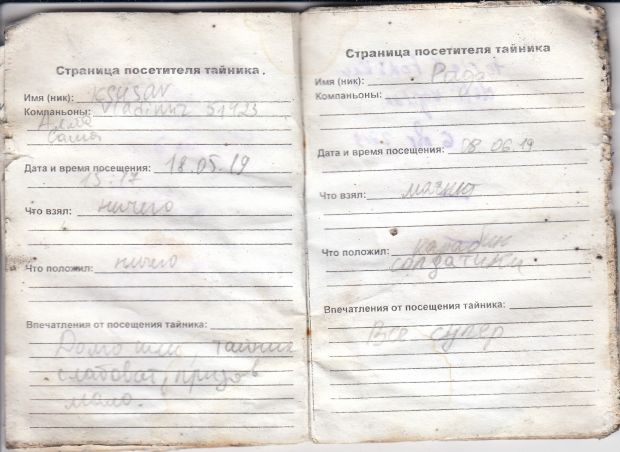 Страница посетителя тайника.
Имя (ник): KSYSAV
Компаньоны: Vladimir 51423
Алла
Саша
Дата и время посещения: 18.05.19
15.17
Что взял: ничего
Что положил: ничго
Впечатления от посещения тайника:
Долго шли тайник
слабоват, призов
мало.
Страница посетителя тайника
Имя (ник):
Компаньоны:
Дата и время посещения: 08.06.19
Что взял:
Что положил: карабин
солдатики
Впечатления от посещения тайника:
Все супер